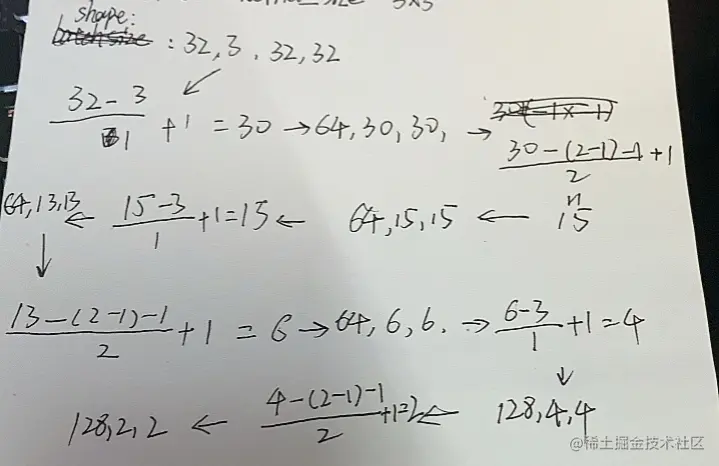 3×3
shape:
batchsize : 32,3,32,32
(32-3)/1 + 1 = 30 → 64,30,30, → (30-(2-1)-1)/2 + 1
64,13,13 ← (15-3)/1 + 1 = 15 ← 64,15,15 ← 15
(13-(2-1)-1)/2 + 1 = 6 → 64,6,6. → (6-3)/1 + 1 = 4
128,2,2 ← (4-(2-1)-1)/2 + 1 = 2 ← 128,4,4
@稀土掘金技术社区